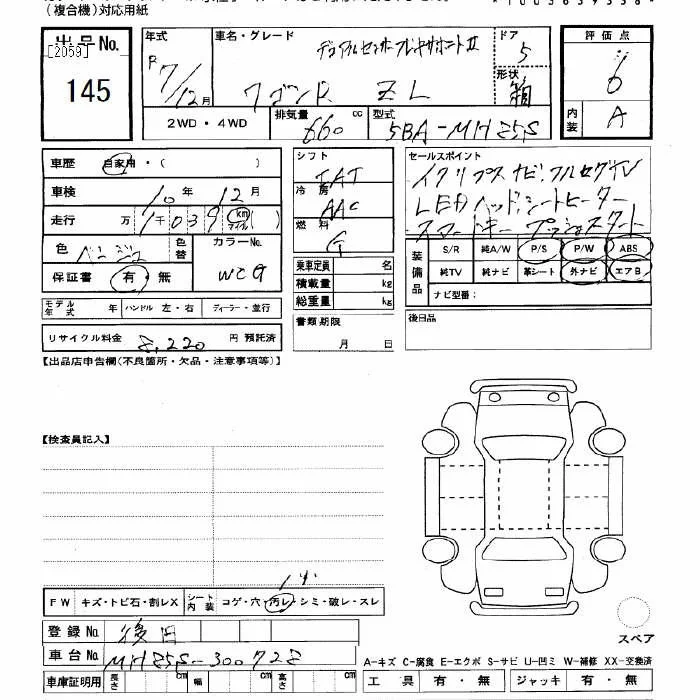 (複合機)対応用紙
出品No.
[2059]
145
年式
R 7/12月
車名・グレード
デュアルセンサーブレーキサポートⅡ
ワゴンR ZL
ドア 5
形状 箱
評価点
6
内装 A
2WD・4WD
排気量 660 cc
型式 5BA-MH85S
車歴 自家用・( )
車検 10年 12月
走行 万 1千 039 km マイル( )
色 ベージュ
色替
カラーNo. WC9
保証書 有・無
モデル年式 年 ハンドル 左・右 ディーラー・並行
リサイクル料金 8,220 円 預託済
シフト
IAT
冷房
AAC
燃料
G
乗車定員 名
積載量 kg
総重量 kg
書類期限
月 日
セールスポイント
イクリプスナビ、フルセグTV
LEDヘッド、シートヒーター
スマートキー プッシュスタート
装備品
S/R 純A/W P/S P/W ABS
純TV 純ナビ 革シート 外ナビ エアB
ナビ型番:
後日品
【出品店申告欄(不良箇所・欠品・注意事項等)】
【検査員記入】
FW キズ・トビ石・割レX シート内装 コゲ・穴・汚レ・シミ・破レ・スレ
登録No. 後日
車台No. MH85S-300728
車庫証明用 長さ cm 幅 cm 高さ cm
スペア
A-キズ C-腐食 E-エクボ S-サビ U-凹ミ W-補修 XX-交換済
工具 有・無 ジャッキ 有・無